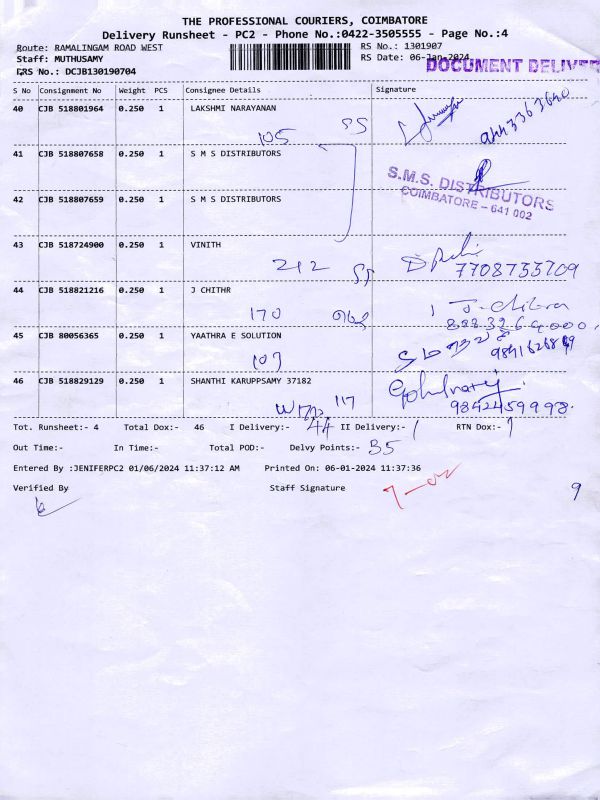 THE PROFESSIONAL COURIERS, COIMBATORE
Delivery Runsheet - PC2 - Phone No.:0422-3505555 - Page No.:4
Route: RAMALINGAM ROAD WEST RS No.: 1301907
Staff: MUTHUSAMY RS Date: 06-Jan-2024
DRS No.: DCJB130190704 DOCUMENT DELIVER
S No Consignment No Weight PCS Consignee Details Signature
40 CJB 518801964 0.250 1 LAKSHMI NARAYANAN
105
41 CJB 518807658 0.250 1 S M S DISTRIBUTORS
S.M.S. DISTRIBUTORS
COIMBATORE - 641 002
42 CJB 518807659 0.250 1 S M S DISTRIBUTORS
43 CJB 518724900 0.250 1 VINITH
212 7708733709
44 CJB 518821216 0.250 1 J CHITHR
170 J. Chitra
45 CJB 80056365 0.250 1 YAATHRA E SOLUTION
107
46 CJB 518829129 0.250 1 SHANTHI KARUPPSAMY 37182
117 9842459998.
Tot. Runsheet:- 4 Total Dox:- 46 I Delivery:- 44 II Delivery:- 1 RTN Dox:- 1
Out Time:- In Time:- Total POD:- Delvy Points:- 35
Entered By :JENIFERPC2 01/06/2024 11:37:12 AM Printed On: 06-01-2024 11:37:36
Verified By Staff Signature
9